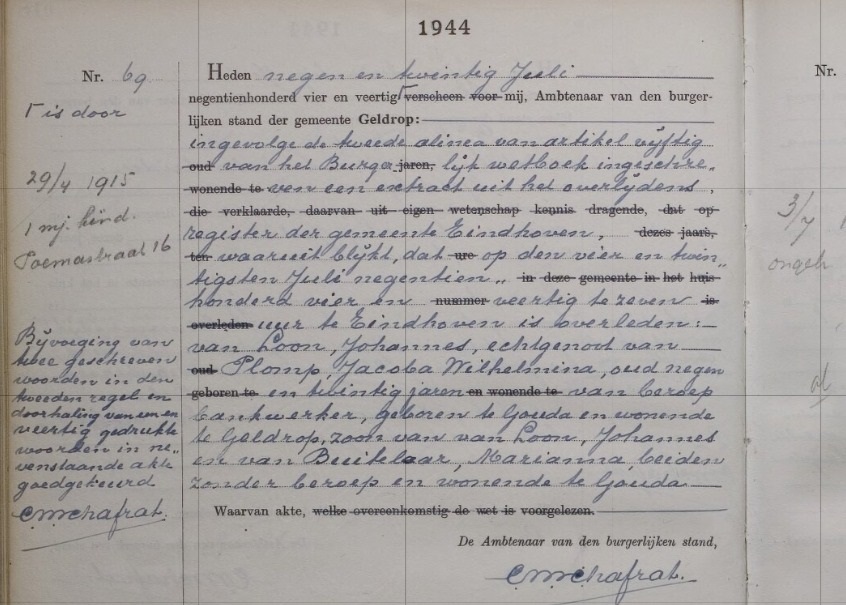 1944
Nr. 69
Γ is door
29/4 1915
1 mj. kind.
Poemastraat 16
Bijvoeging van
twee geschreven
woorden in den
tweeden regel en
doorhaling van een en
veertig gedrukte
woorden in ne„
venstaande akte
goedgekeurd
Heden negen en twintig Juli
negentienhonderd vier en veertig Γ verscheen voor mij, Ambtenaar van den burger-
lijken stand der gemeente Geldrop:
ingevolge de tweede alinea van artikel vijftig
oud van het Burger jaren, lijk wetboek ingeschre„
wonende te ven een extract uit het overlijdens„
die verklaarde, daarvan uit eigen wetenschap kennis dragende, dat op
register der gemeente Eindhoven, dezes jaars,
ten waaruit blijkt, dat ure op den vier en twin„
tigsten Juli negentien„ in deze gemeente in het huis
honderd vier en nummer veertig te zeven is
overleden uur te Eindhoven is overleden:
van Loon, Johannes, echtgenoot van
oud Plomp, Jacoba Wilhelmina, oud negen
geboren te en twintig jaren en wonende te van beroep
bankwerker, geboren te Gouda en wonende
te Geldrop, zoon van van Loon, Johannes
en van Buitelaar, Marianna, beiden
zonder beroep en wonende te Gouda
Waarvan akte, welke overeenkomstig de wet is voorgelezen.
De Ambtenaar van den burgerlijken stand,
Nr.
3/7
ongeh